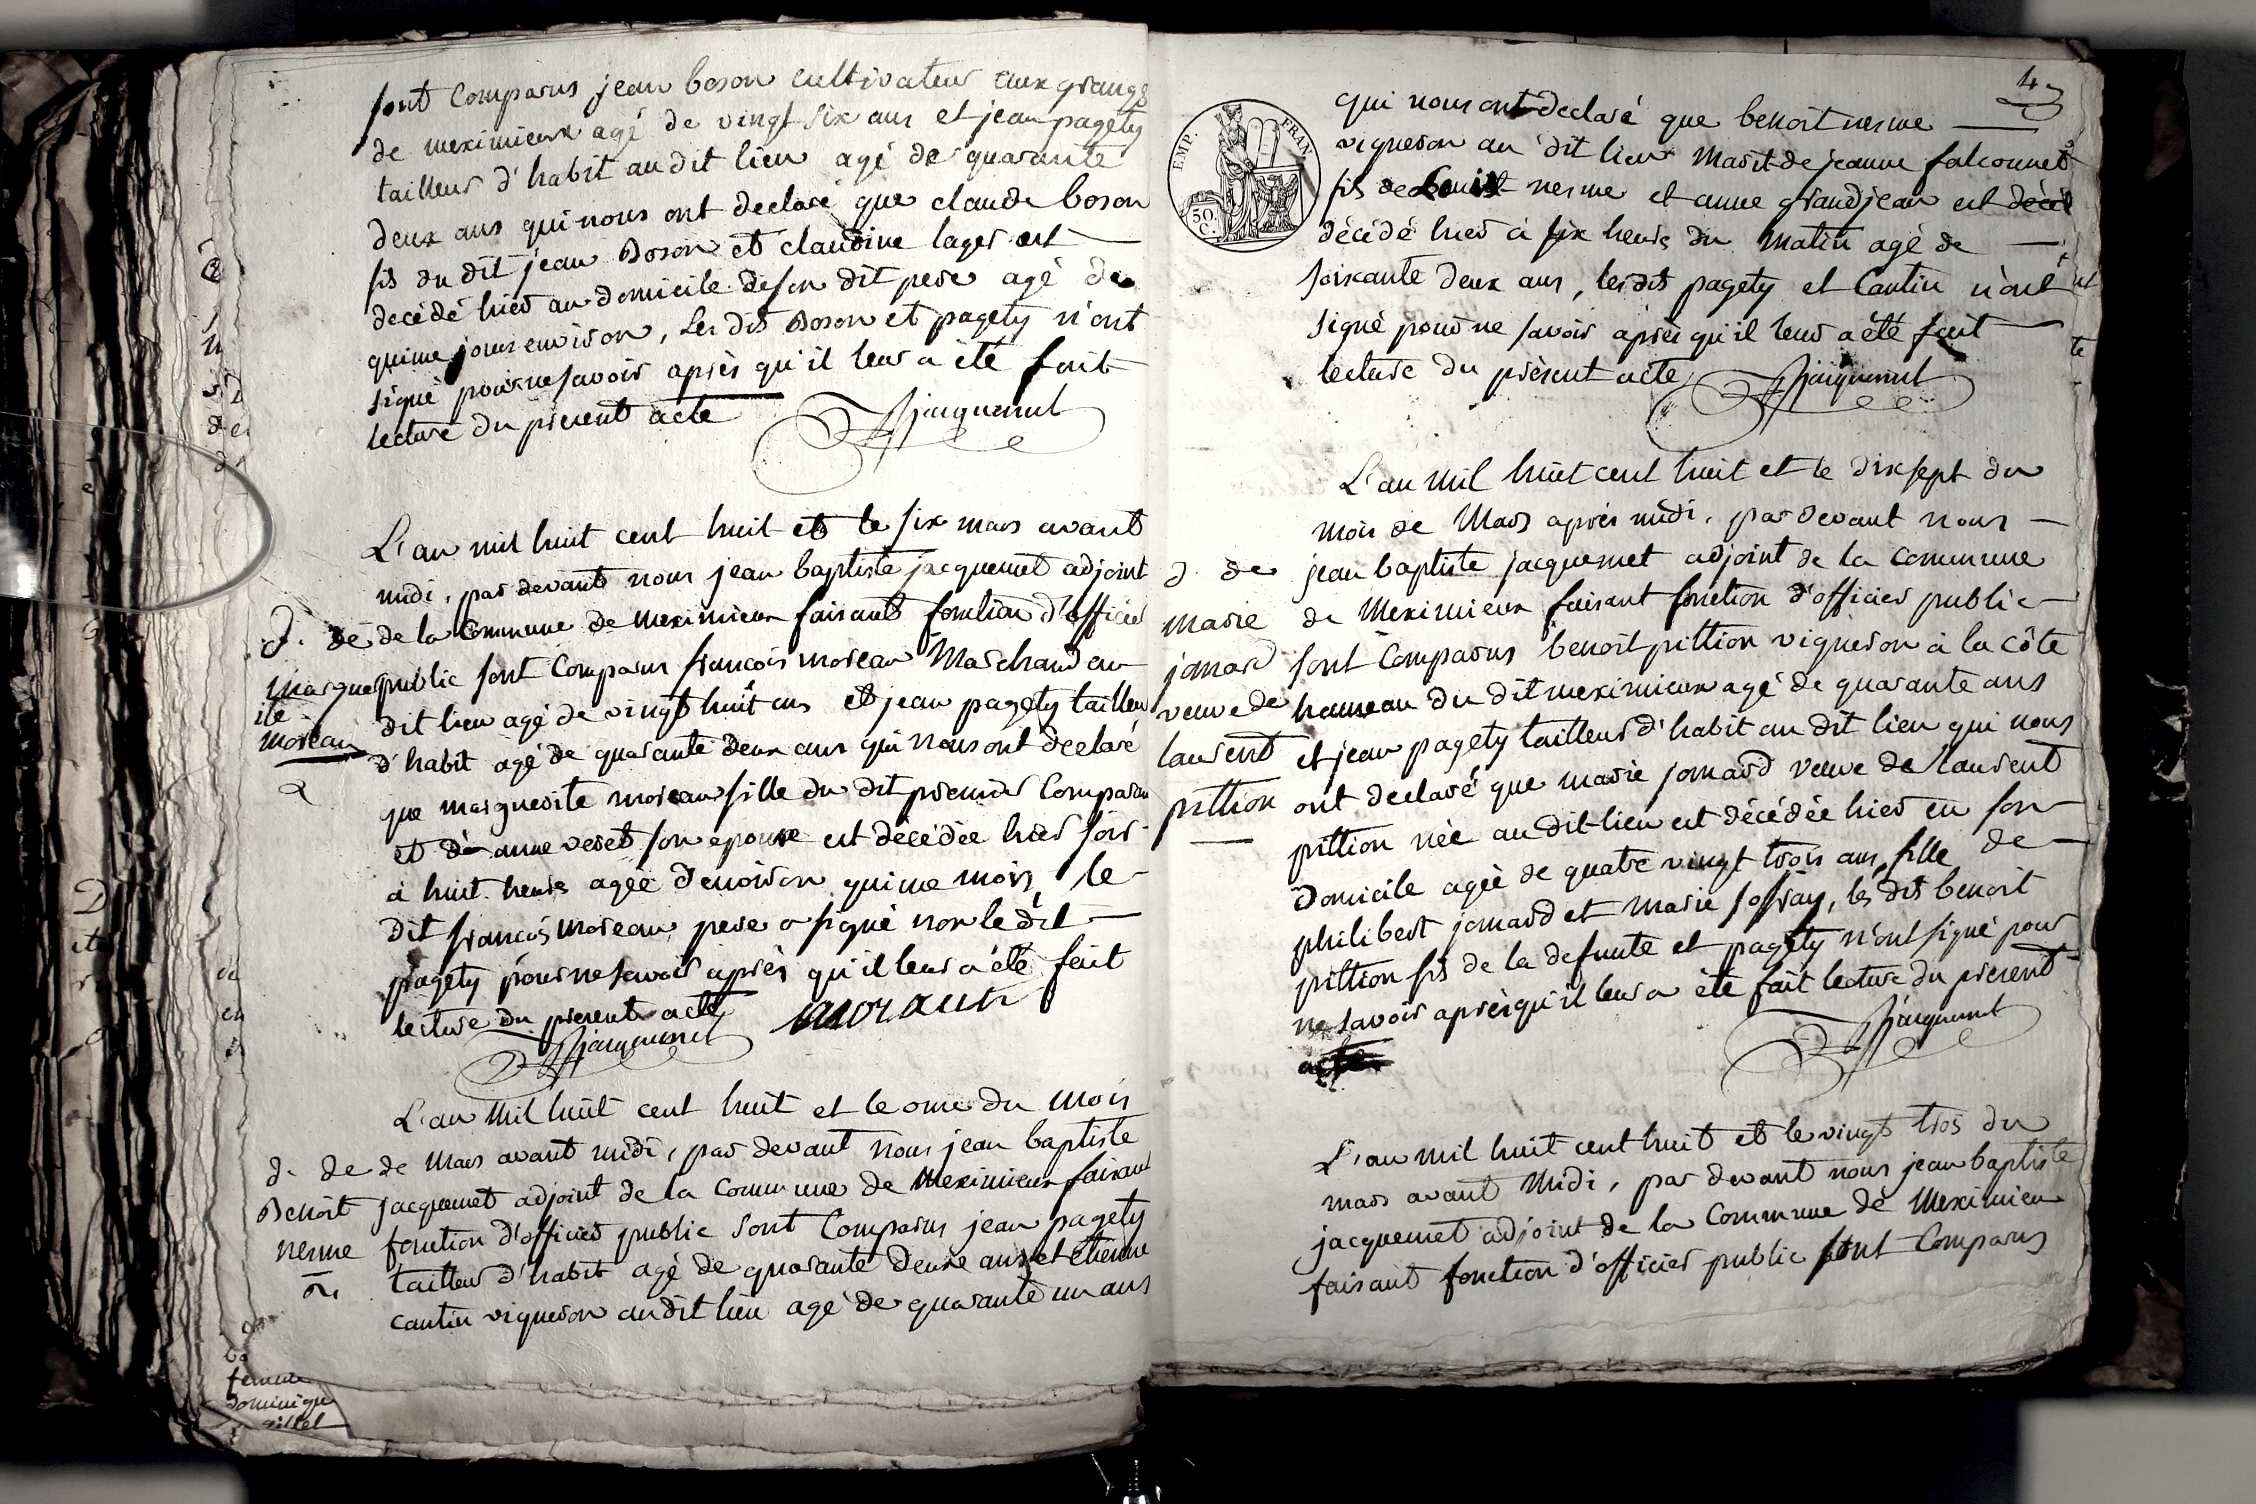 sont comparus jean boson cultivateur aux granges
de meximieux agé de vingt six ans et jean pagety
tailleur d'habit au dit lieu agé de quarante
deux ans qui nous ont declaré que claude boson
fils du dit jean Boson et claudine lager est
decédé hier au domicile de son dit pere agé de
quinze jours environ, les dits Boson et pagety n'ont
signé pour ne savoir après qu'il leur a été fait
lecture du présent acte Jacquemet
L'an mil huit cent huit et le six mars avant
midi, par devant nous jean baptiste jacquemet adjoint
de la Commune de meximieux faisant fonction d'officier
public sont Comparus françois moreau Marchand au
dit lieu agé de vingt huit ans et jean pagety tailleur
d'habit agé de quarante deux ans qui nous ont declaré
que marguerite moreau fille du dit premier Comparu
et d'anne veret son epouse est décédée hier soir
à huit heures agée d'environ quinze mois, le
dit françois moreau pere a signé non le dit
pagety pour ne savoir après qu'il leur a été fait
lecture du present acte moraux
Jacquemet
d. de
marguer
ite
moreau
L'an Mil huit cent huit et le onze du mois
de Mars avant midi, par devant nous jean baptiste
jacquemet adjoint de la Commune de Meximieux faisant
fonction d'officier public sont Comparus jean pagety
tailleur d'habit agé de quarante deux ans et etienne
cantin vigneron audit lieu agé de quarante un ans
d. de
Benoit
nerme
femme
dominique
4
EMP. FRAN.
50.
C.
qui nous ont declaré que benoit nerme
vigneron au dit lieu Marit de jeanne falconnet
fils de nerme et anne grandjean est
décédé hier à six heures du Matin agé de
soixante deux ans, lesdits pagety et Cantin n'ont
signé pour ne savoir après qu'il leur a été fait
lecture du présent acte Jacquemet
L'an Mil huit cent huit et le dix sept du
mois de Mars après midi, par devant nous
jean baptiste jacquemet adjoint de la commune
de Meximieux faisant fonction d'officier public
sont Comparus benoit pittion vigneron à la côte
hameau du dit meximieux agé de quarante ans
et jean pagety tailleur d'habit au dit lieu qui nous
ont declaré que marie jomard veuve de laurent
pittion née au dit lieu est décédée hier en son
Domicile agée de quatre vingt trois ans fille de
philibert jomard et marie joffray, les dits benoit
pittion fils de la defunte et pagety n'ont signé pour
ne savoir après qu'il leur a été fait lecture du present
acte Jacquemet
d. de
marie
jomard
veuve de
laurent
pittion
L'an mil huit cent huit et le vingt trois du
mars avant Midi, par devant nous jean baptiste
jacquemet adjoint de la Commune de Meximieu
faisant fonction d'officier public sont Comparus